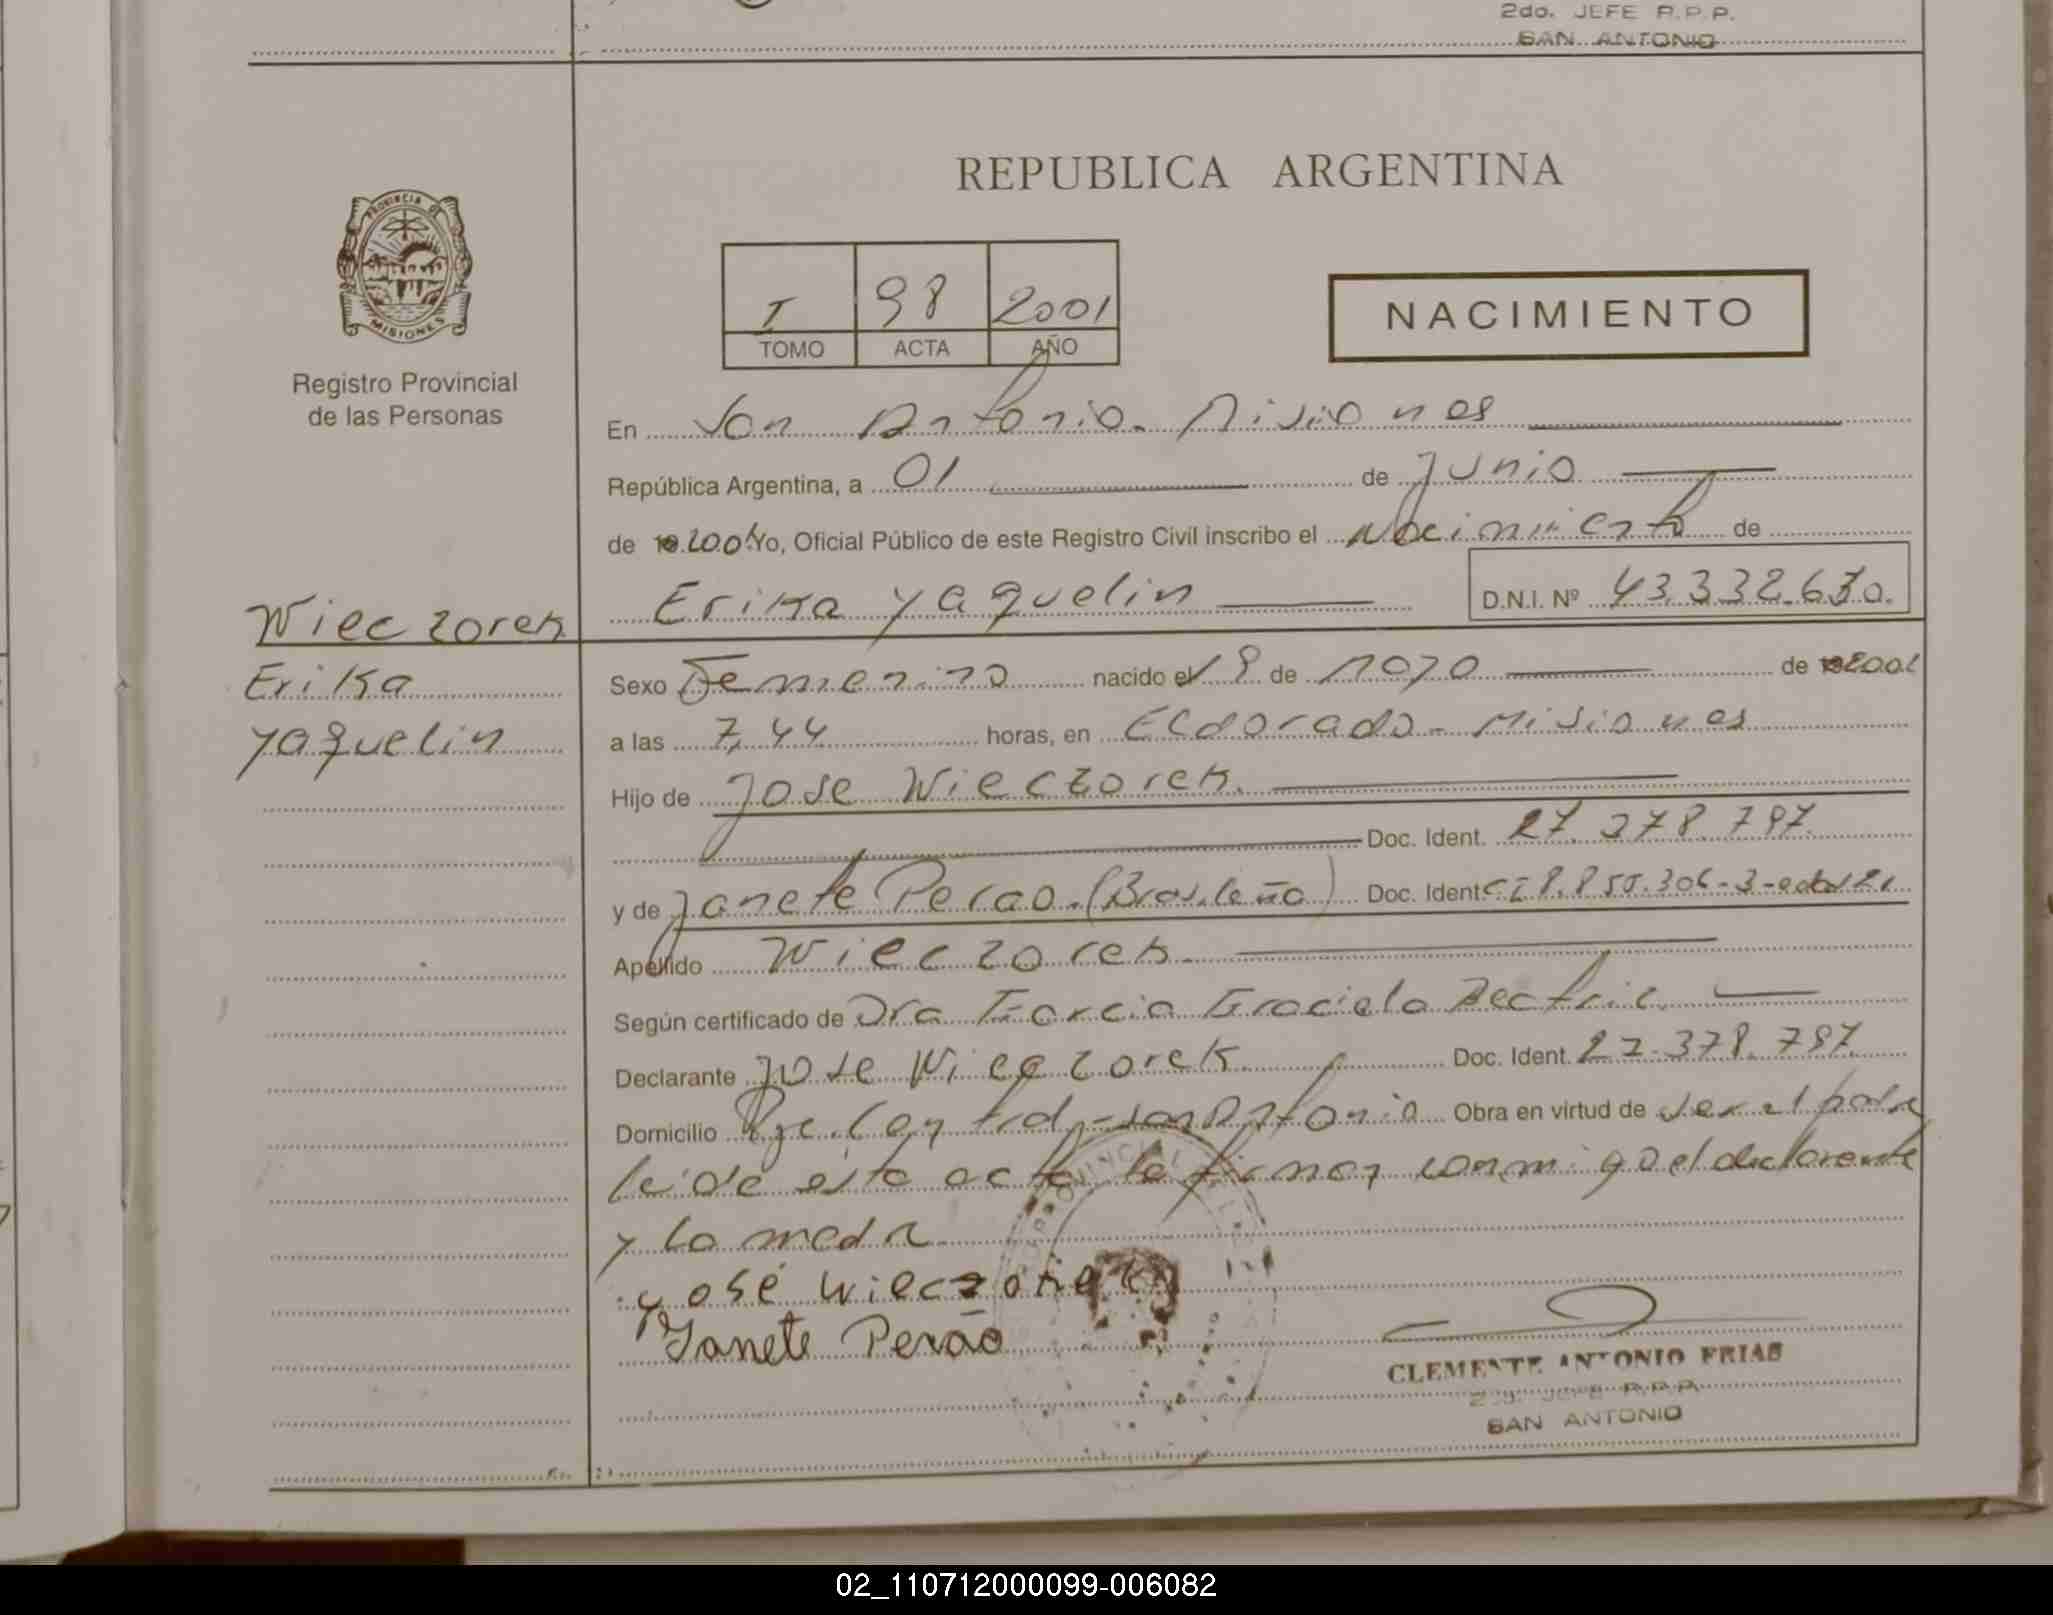 2do. JEFE R.P.P.
SAN ANTONIO
PROVINCIA DE
MISIONES
Registro Provincial
de las Personas
REPUBLICA ARGENTINA
I 98 2001
TOMO ACTA AÑO
NACIMIENTO
En San Antonio. Misiones
República Argentina, a 01 de Junio
de 19 2001 Yo, Oficial Público de este Registro Civil inscribo el Nacimiento de
Erika Yaquelin D.N.I. Nº 43.332.630.
Wieczorek
Erika
Yaquelin
Sexo Femenino nacido el 19 de Mayo de 19 2001
a las 7,44 horas, en Eldorado - Misiones
Hijo de Jose Wieczorek.
Doc. Ident. 27.378.797
y de Janete Perao. (Brasileña) Doc. Ident. CI 8.850.306-3-edad 21
Apellido Wieczorek.
Según certificado de Dra Garcia Graciela Beatriz.
Declarante Jose Wieczorek Doc. Ident. 27.378.797
Domicilio San Antonio Obra en virtud de ser el padre
leida esta acta la firman conmigo el declarante
y la madre
José wieczorek
Janete Perão
CLEMENTE ANTONIO FRIAS
2do. JEFE R.P.P.
SAN ANTONIO
02_110712000099-006082